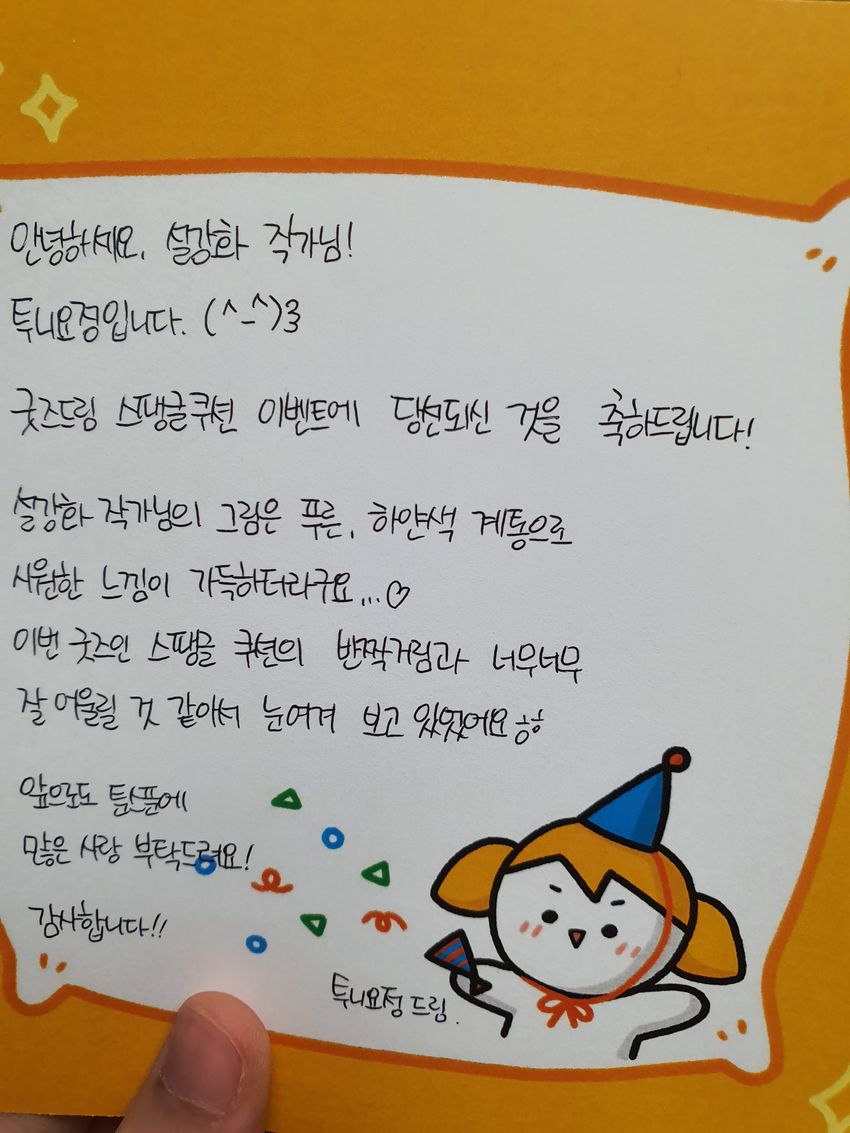 안녕하세요, 설강화 작가님!
투니요정입니다. (^-^)3
굿즈드림 스팽글쿠션 이벤트에 당선되신 것을 축하드립니다!
설강화 작가님의 그림은 푸른, 하얀색 계통으로
시원한 느낌이 가득하더라구요...♡
이번 굿즈인 스팽글 쿠션의 반짝거림과 너무너무
잘 어울릴 것 같아서 눈여겨 보고 있었어요ㅎㅎ
앞으로도 툰스푼에
많은 사랑 부탁드려요!
감사합니다!!
투니요정 드림.